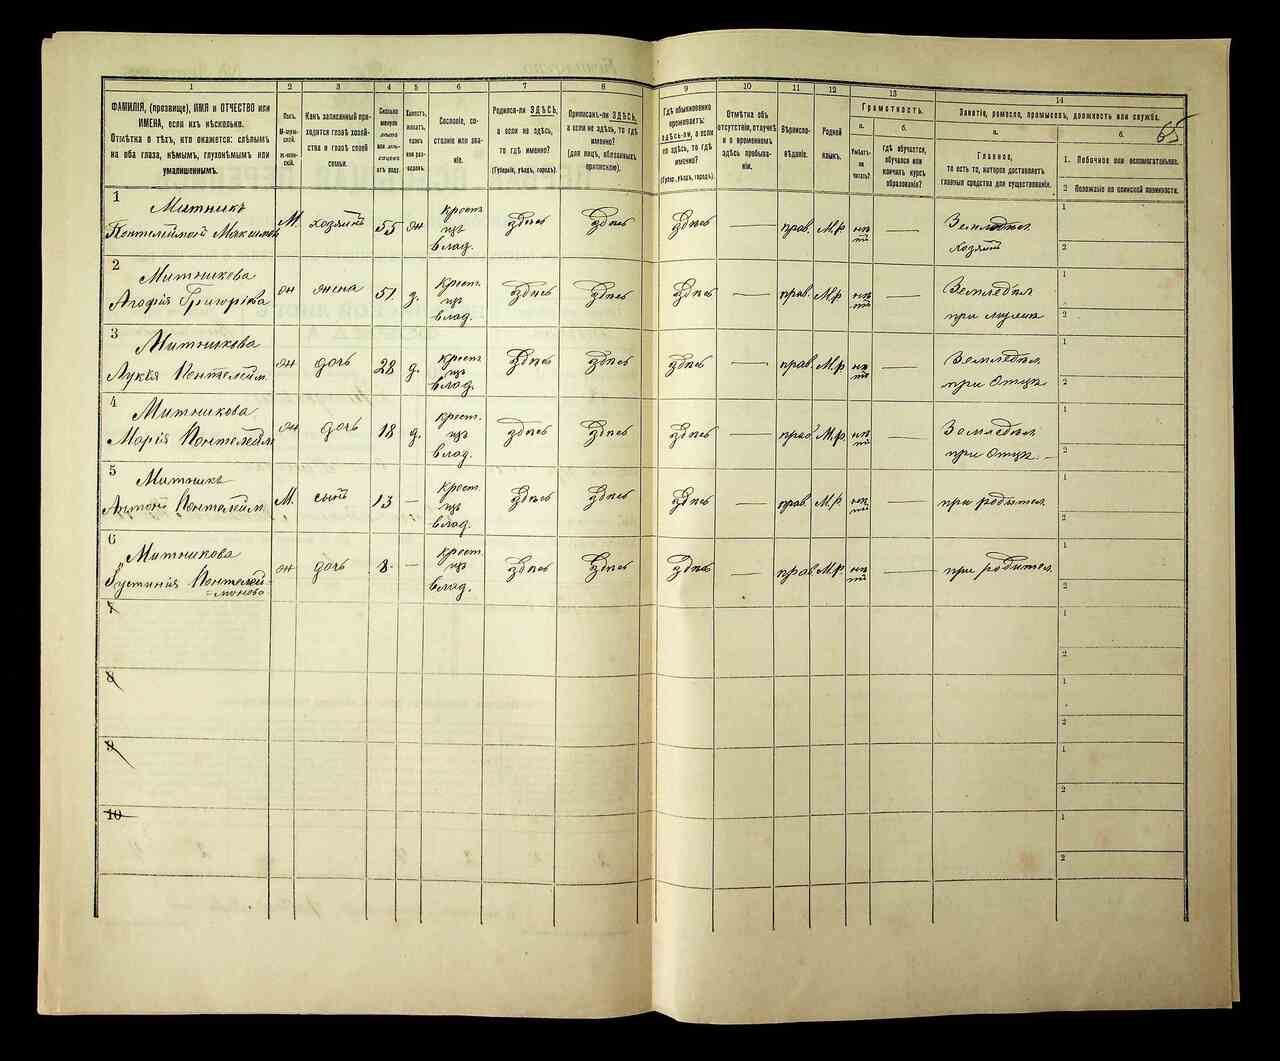 1 2 3 4 5 6 7 8 9 10 11 12 13 14
ФАМИЛІЯ, (прозвище), ИМЯ и ОТЧЕСТВО или
ИМЕНА, если ихъ нѣсколько.
Отмѣтка о тѣхъ, кто окажется: слѣпымъ
на оба глаза, нѣмымъ, глухонѣмымъ или
умалишеннымъ.
Полъ.
М-муж-
ской.
Ж-жен-
скій.
Какъ записанный при-
ходится главѣ хозяй-
ства и главѣ своей
семьи.
Сколько
минуло
лѣтъ
или мѣ-
сяцевъ
отъ роду.
Холостъ,
женатъ,
вдовъ
или раз-
веденъ.
Сословіе, со-
стояніе или зва-
ніе.
Родился-ли ЗДѢСЬ,
а если не здѣсь,
то гдѣ именно?
(Губернія, уѣздъ, городъ).
Приписанъ-ли ЗДѢСЬ,
а если не здѣсь, то гдѣ
именно?
(для лицъ, обязанныхъ
припискою).
Гдѣ обыкновенно
проживаетъ:
здѣсь-ли, а если
не здѣсь, то гдѣ
именно?
(Губер., уѣздъ, городъ).
Отмѣтка объ
отсутствіи, отлучкѣ
и о временномъ
здѣсь пребыва-
ніи.
Вѣроиспо-
вѣданіе.
Родной
языкъ.
Грамотность.
а.
Умѣетъ-
ли
читать?
б.
гдѣ обучается,
обучался или
кончилъ курсъ
образованія?
Занятіе, ремесло, промыселъ, должность или служба.
а.
Главное,
то есть то, которое доставляетъ
главныя средства для существованія.
б.
65
1. Побочное или вспомогательное.
2 Положеніе по воинской повинности.
1
Митникъ
Понтелеймонъ Максимов
М. хозяинъ 55 Крест.
изъ
влад.
здѣсь здѣсь здѣсь — прав. М.р нѣ
тъ
— Земледѣл.
хозяинъ
1
2
2
Митникова
Агафія Григорієва
жена 51. Крест.
изъ
влад.
здѣсь здѣсь здѣсь — прав. М.р. нѣ
тъ
— Земледѣл.
при мужѣ
1
2
3
Митникова
Лукія Понтелейм.
дочь 28 д. Крест.
изъ
влад.
здѣсь здѣсь здѣсь — прав. М.р нѣ
тъ
— Земледѣл.
при Отцѣ
1
2
4
Митникова
Марія Понтелейм
дочь 18 д. Крест.
изъ
влад.
здѣсь здѣсь здѣсь — прав. М.р. нѣ
тъ
— Земледѣл.
при Отцѣ.
1
2
5
Митникъ
Антонъ Понтелейм.
М. сынъ 13 — Крест.
изъ
влад.
здѣсь здѣсь здѣсь — прав. М.р. нѣ
тъ
— при родител.
1
2
6
Митникова
Іустинія Понтелей-
монова
дочь 8. — Крест.
изъ
влад.
здѣсь здѣсь здѣсь — прав. М.р. нѣ
тъ
— при родител.
1
2
7
1
2
8
1
2
9
1
2
10
1
2